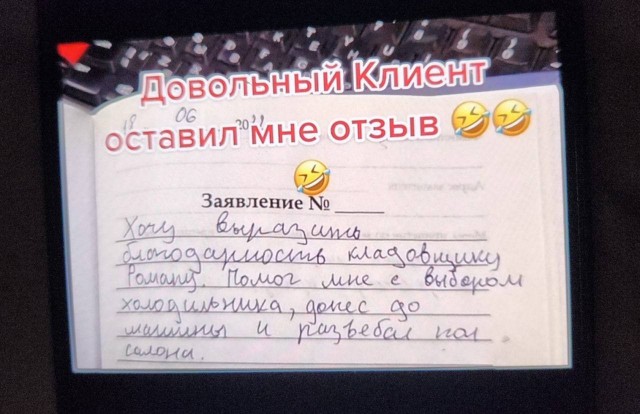 Довольный Клиент
оставил мне отзыв 🤣🤣
18 06
Заявление № ____
Хочу выразить
благодарность кладовщику
Роману. Помог мне с выбором
холодильника, донес до
машины и разъебал пол
салона.